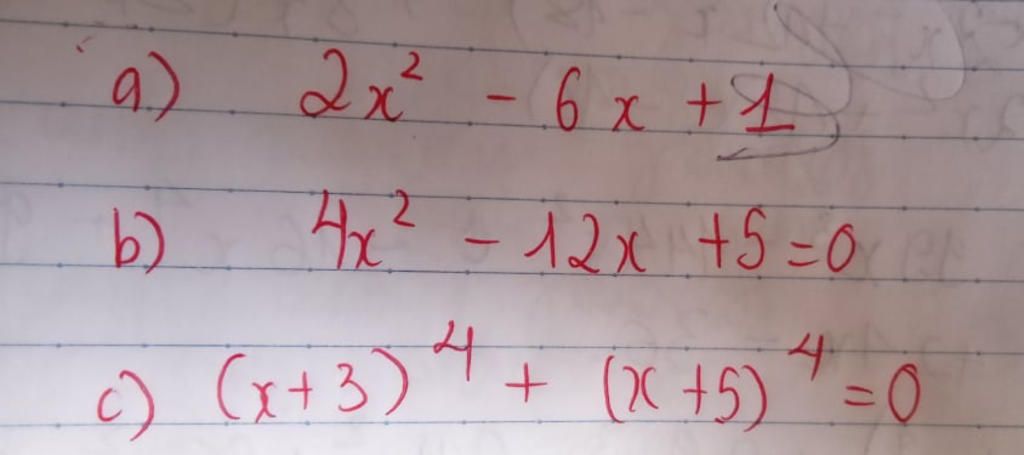 a) 2x² - 6x + 1
b) 4x² - 12x + 5 = 0
c) (x + 3)⁴ + (x + 5)⁴ = 0